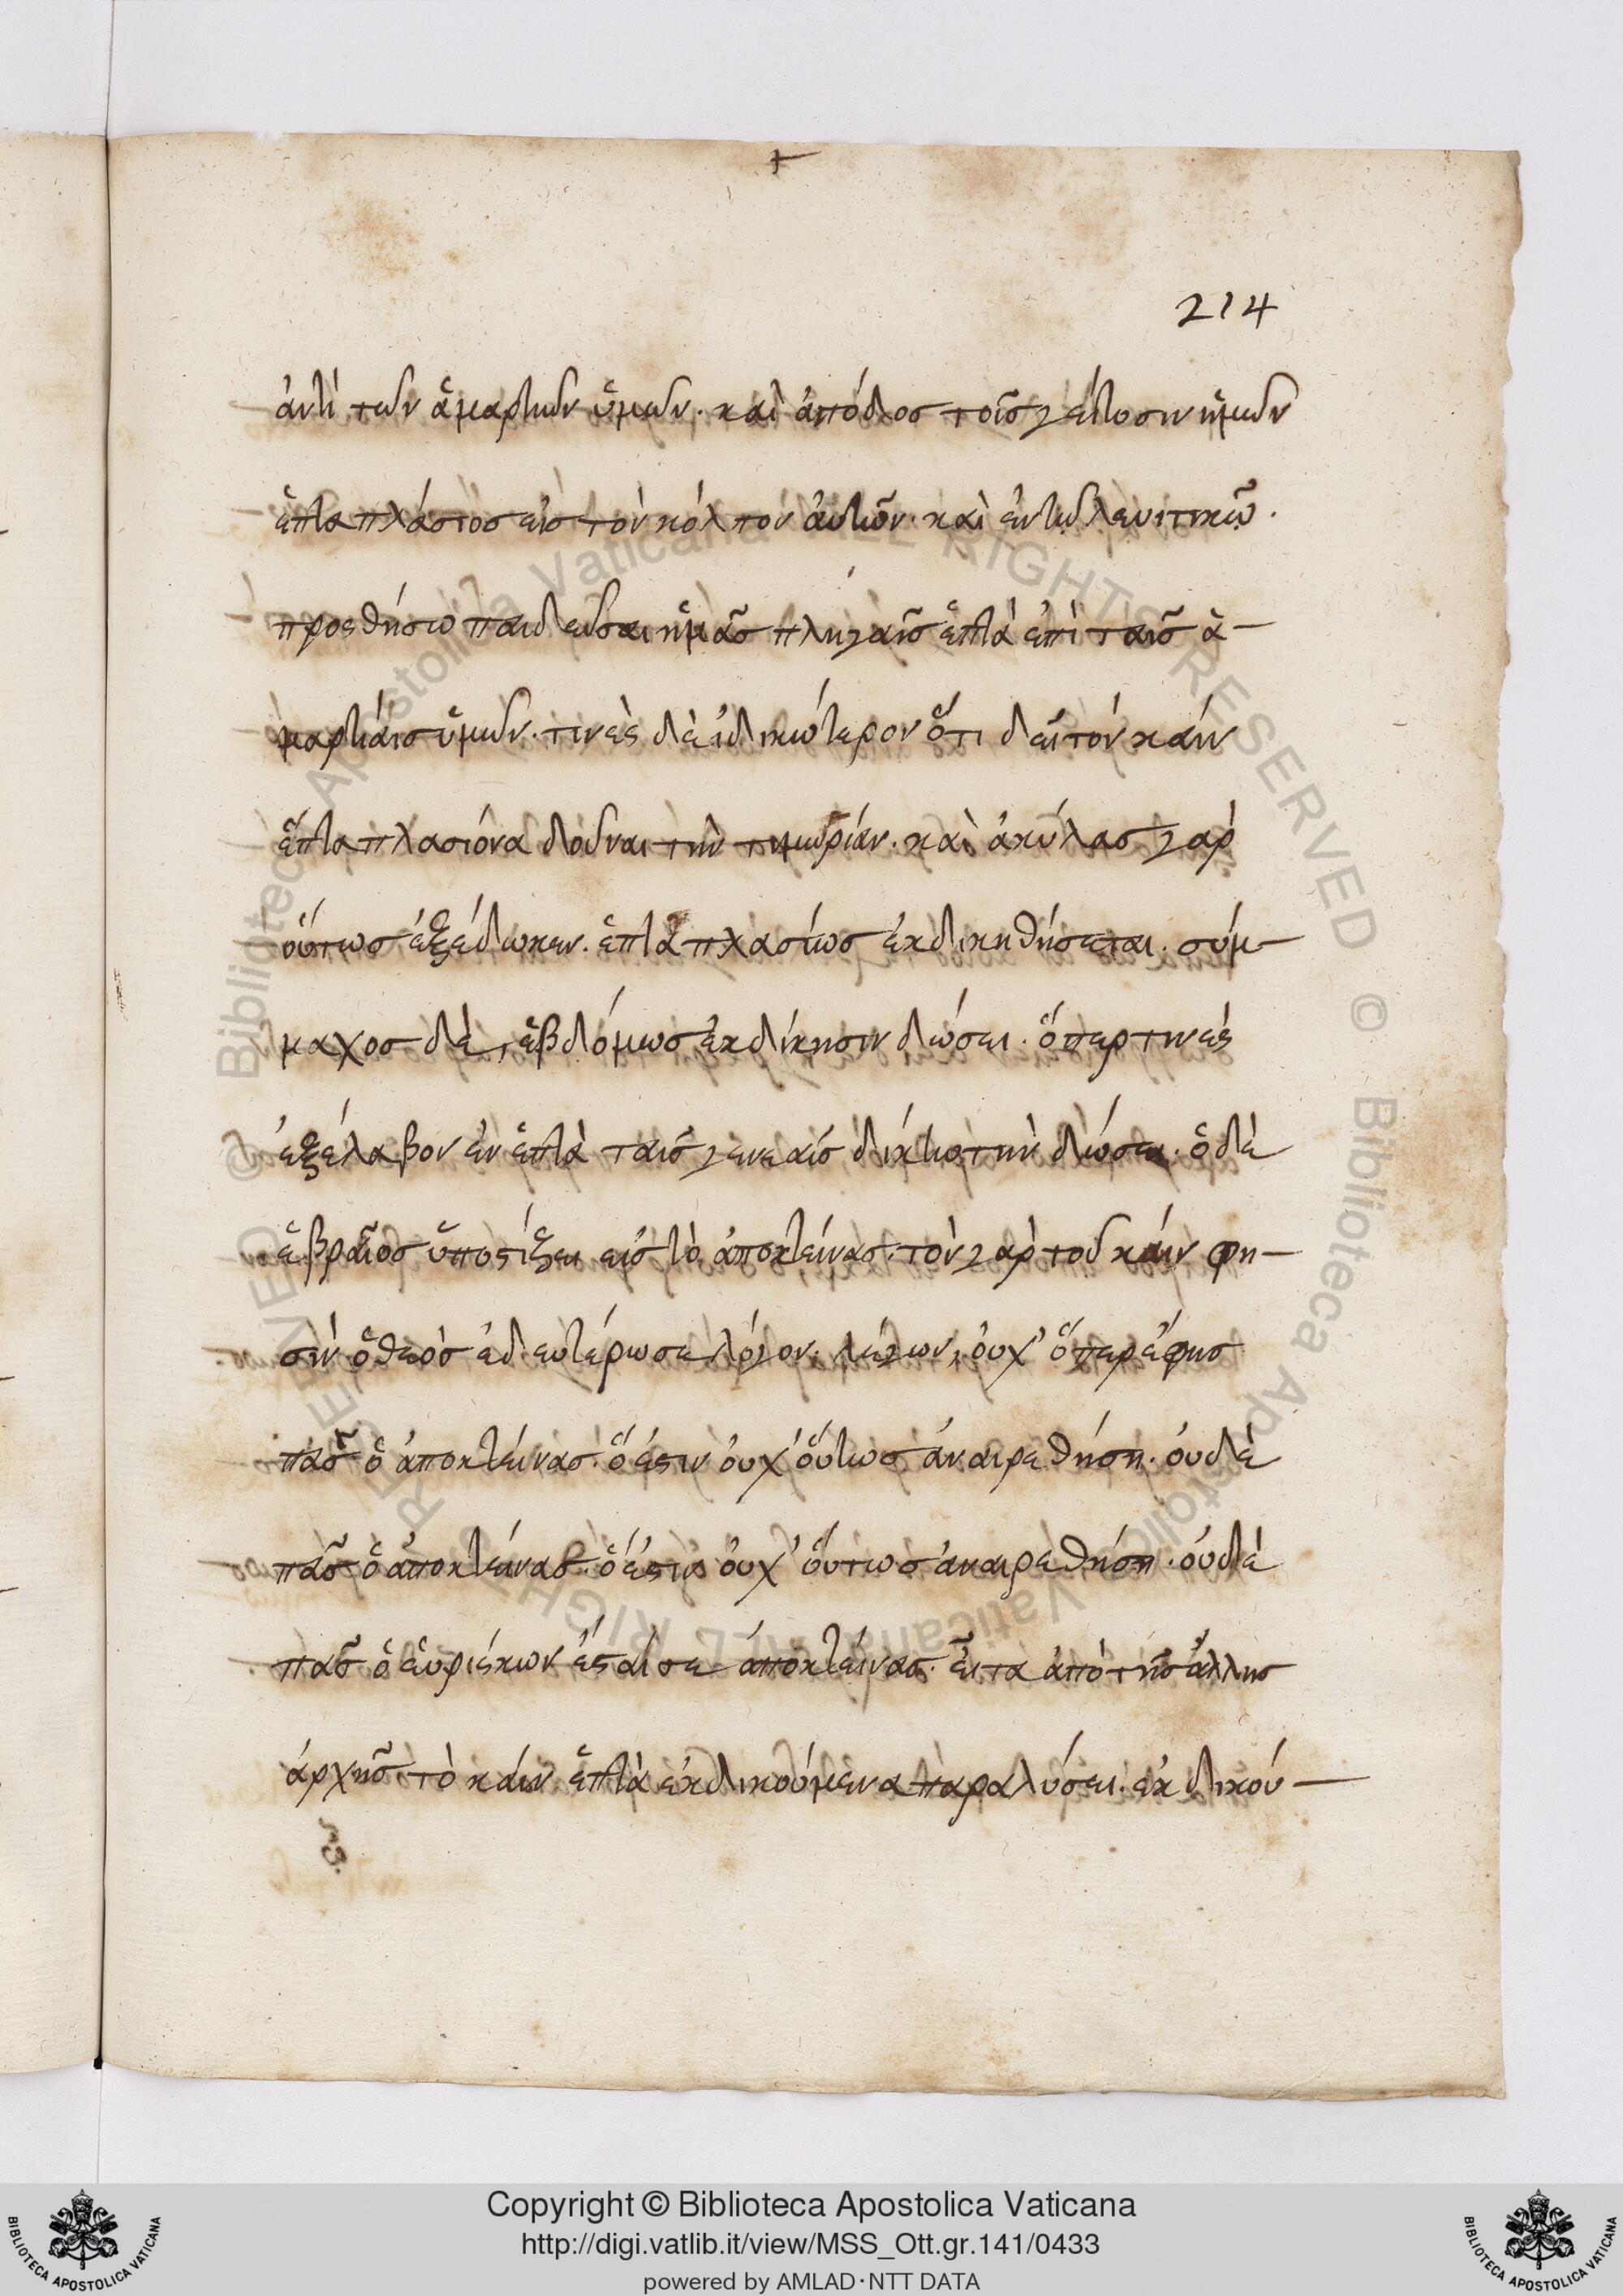 214
ἀντὶ τῶν ἁμαρτιῶν ὑμῶν. καὶ ἀπόδος τοῖς γείτοσιν ἡμῶν
ἑπταπλάσιος εἰς τὸν κόλπον ἀυτῶν. καὶ ἐν τῷ λευιτικῷ.
προςθήσω παιδεῦσαι ἡμᾶς πληγαῖς ἑπτὰ ἐπὶ ταῖς ἁ-
μαρτίαις ὑμῶν. τινὲς δὲ ἰδικώτερον ὅτι δεῖ τὸν κάιν
ἑπταπλασιόνα δοῦναι τὴν τιμωρίαν. καὶ ἀκύλας γὰρ
οὕτως ἐξέδωκεν. ἑπταπλασίως ἐκδικηθήσεται. σύμ-
μαχος δὲ, ἑβδόμως ἐκδίκησιν δώσει. ὅπερ τινὲς
ἐξέλαβον ἐν ἑπτὰ ταῖς γενεαῖς δίκην δώσει. ὁ δὲ
ἑβραῖος ὑποστίξει εἰς τὸ ἀποκτείνας. τὸν γὰρ τοῦ κάιν φη-
σὶν ὁ θεὸς ἐδευτέρωσε λόγον. λέγων, ὀυχ' ὅπερ ἔφης
πᾶς ὁ ἀποκτείνας. ὅ ἐστιν ὀυχ' ὅυτως ἀναιρεθήσῃ. ὀυδὲ
πᾶς ὁ ἀποκτείνας. ὅ ἐστιν ὀυχ' ὅυτως ἀναιρεθήσῃ. ὀυδὲ
πᾶς ὁ ἑυρίσκων ἔσται σε ἀποκτείνας. εἶτα ἀπὸ τῆς ἄλλης
ἀρχῆς τὸ κάιν ἑπτὰ ἐκδικούμενα παραλύσει. ἐκδικού-
Copyright © Biblioteca Apostolica Vaticana
http://digi.vatlib.it/view/MSS_Ott.gr.141/0433
powered by AMLAD·NTT DATA